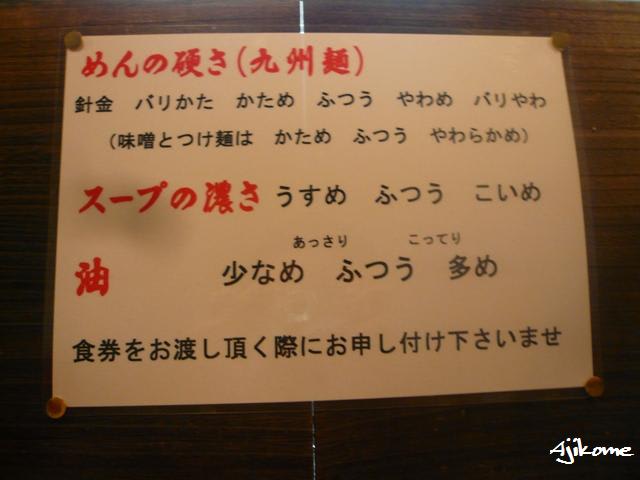 めんの硬さ(九州麺)
針金 バリかた かため ふつう やわめ バリやわ
(味噌とつけ麺は かため ふつう やわらかめ)
スープの濃さ うすめ ふつう こいめ
あっさり こってり
油 少なめ ふつう 多め
食券をお渡し頂く際にお申し付け下さいませ
Ajikome